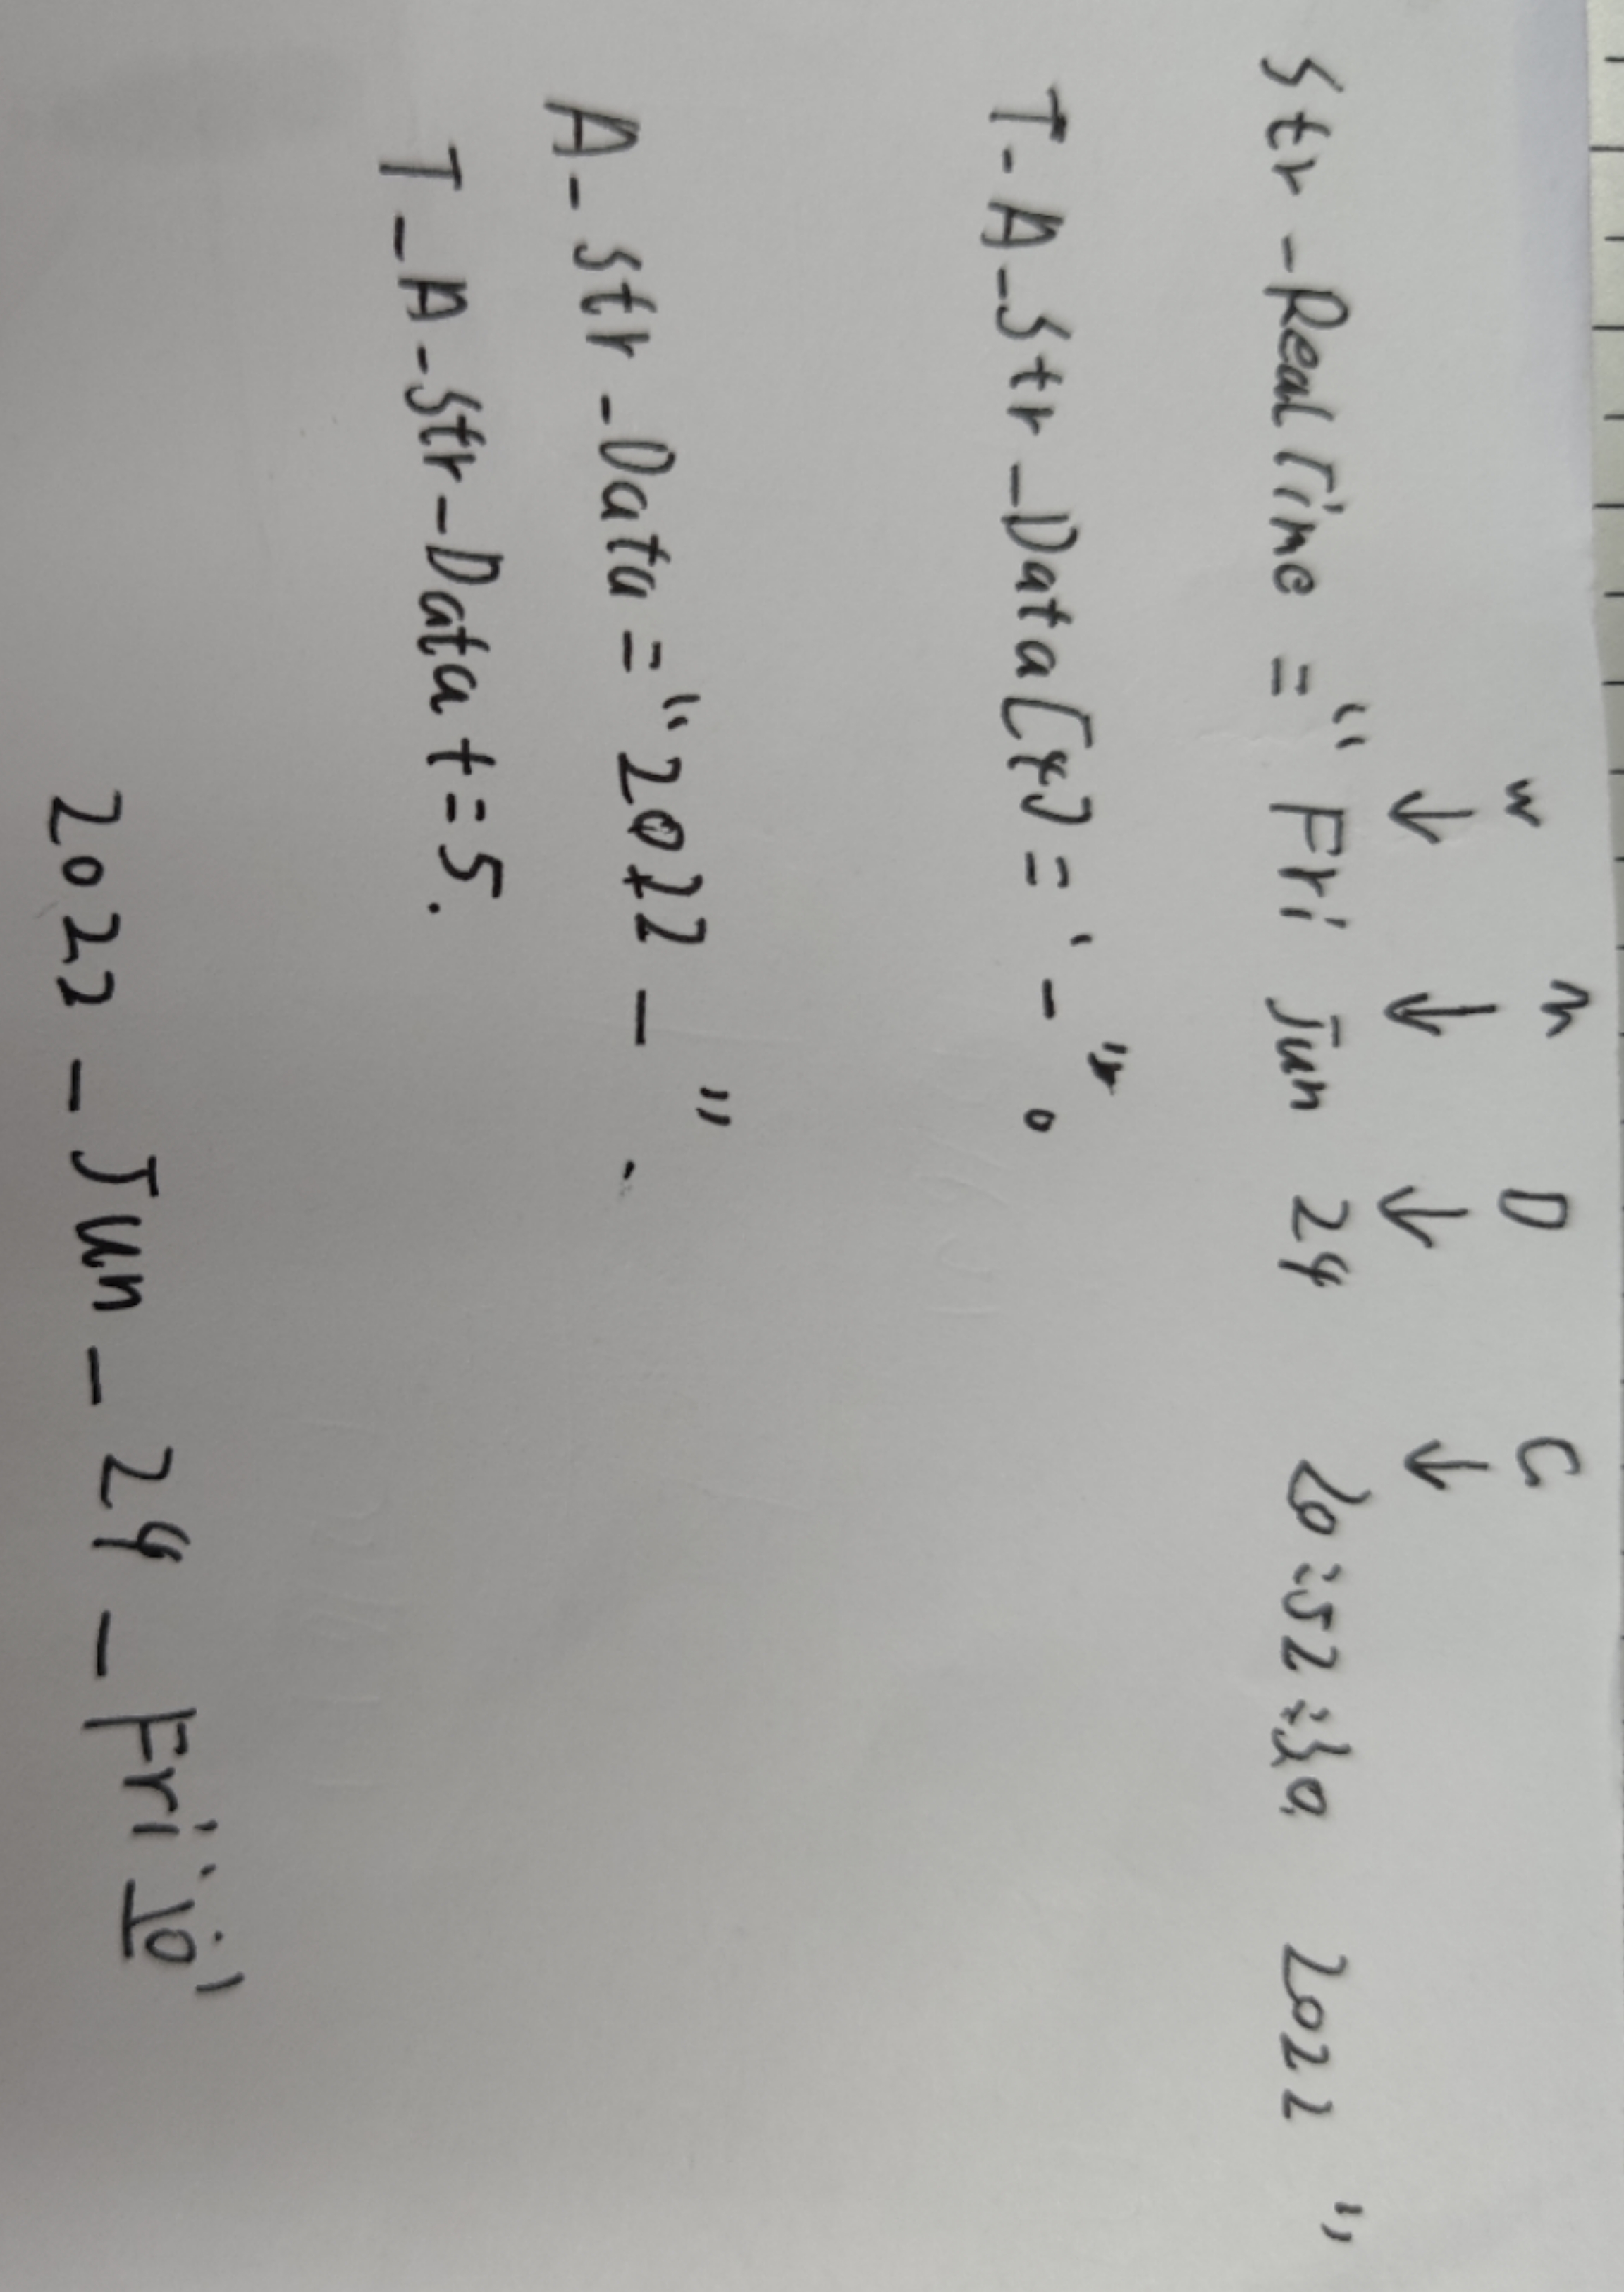 W M D C
↓ ↓ ↓ ↓
Str_RealTime = “ Fri Jun 24 20:52:30 2022 ”
T_A_Str_Data[4] = ‘ - ’。
A_Str_Data = “2022 - ” 、
T_A_Str_Data += 5.
2022 - Jun - 24 - Fri '\0'